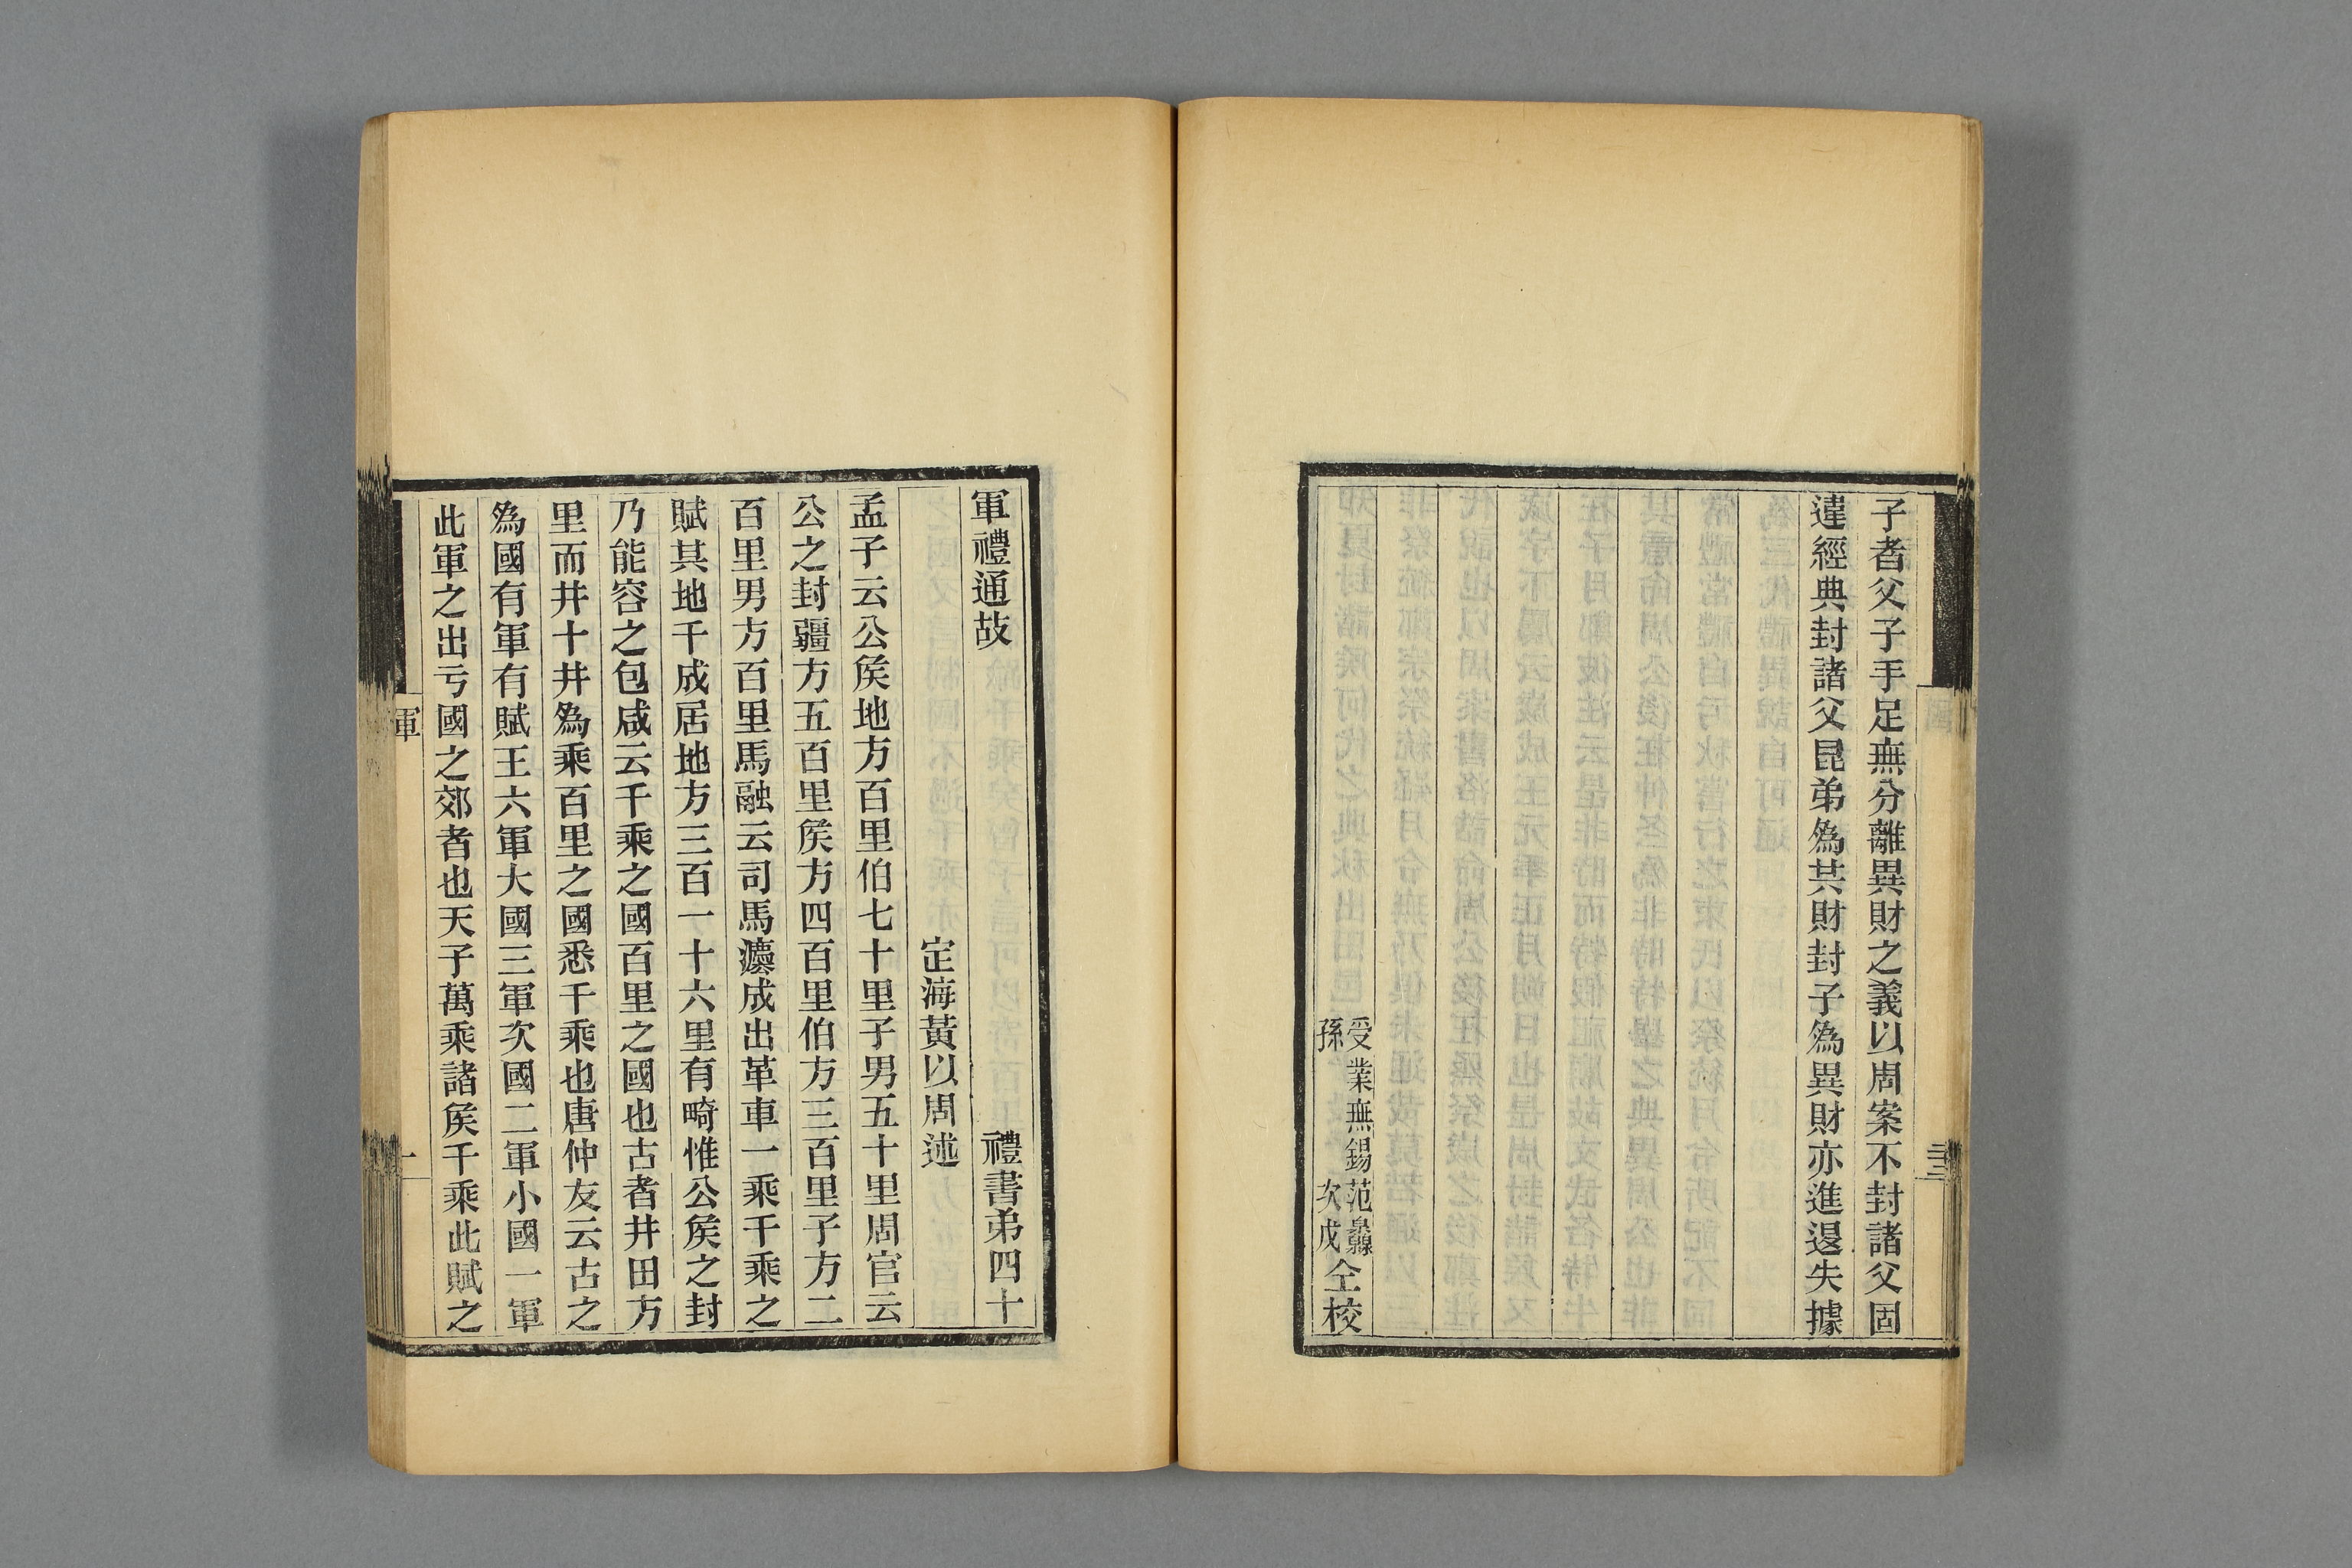 子者父子手足無分離異財之義以周案不封諸父固
違經典封諸父昆弟爲共財封子爲異財亦進退失據
受業無錫范
孫
次戌
仝校
軍禮通故
禮書弟四十
定海黃以周述
孟子云公矦地方百里伯七十里子男五十里周官云
公之封疆方五百里矦方四百里伯方三百里子方二
百里男方百里馬融云司馬灋成出革車一乘千乘之
賦其地千成居地方三百一十六里有畸惟公矦之封
乃能容之包咸云千乘之國百里之國也古者井田方
里而井十井爲乘百里之國悉千乘也唐仲友云古之
爲國有軍有賦王六軍大國三軍次國二軍小國一軍
此軍之出亏國之郊者也天子萬乘諸矦千乘此賦之
軍
一